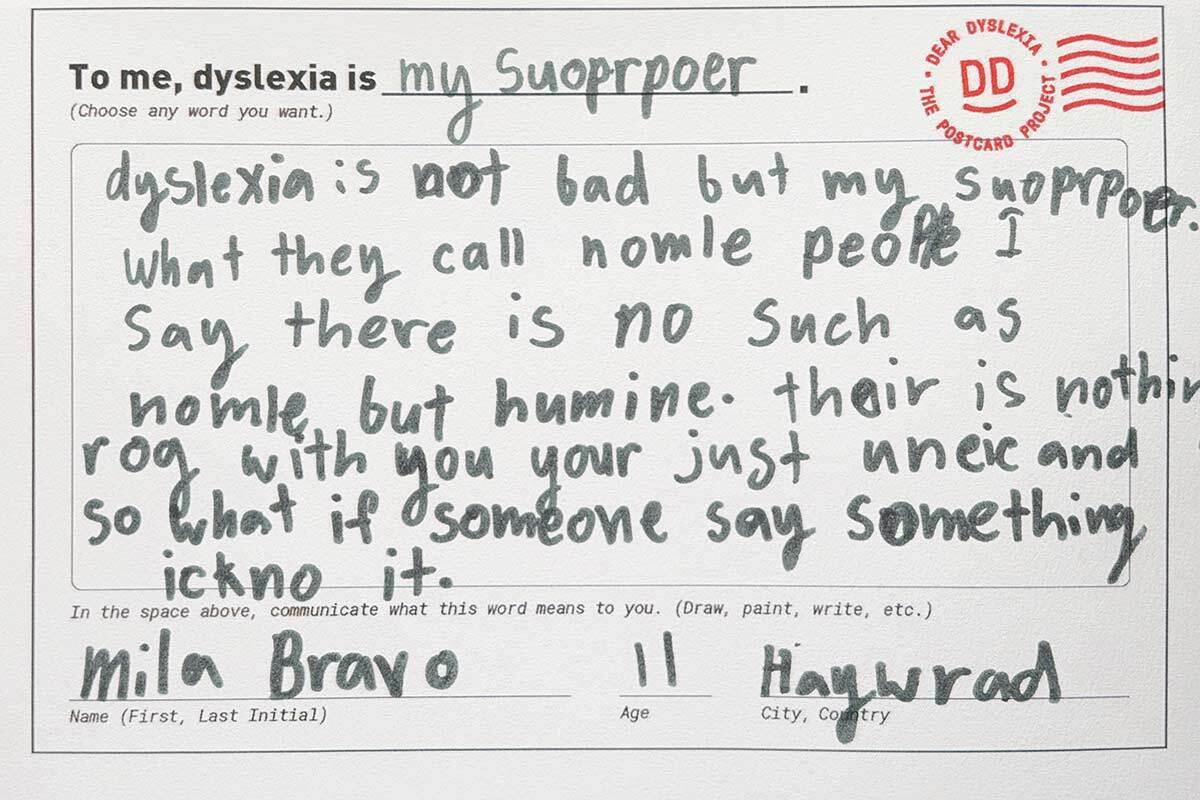 To me, dyslexia is my Suoprpoer.
(Choose any word you want.)
DEAR DYSLEXIA • THE POSTCARD PROJECT •
DD
dyslexia is not bad but my suoprpoer.
what they call nomle people I
Say there is no such as
nomle but humine. thair is nothin
rog with you your just uneic and
so what if someone say something
ickno it.
In the space above, communicate what this word means to you. (Draw, paint, write, etc.)
Mila Bravo 11 Haywrad
Name (First, Last Initial) Age City, Country